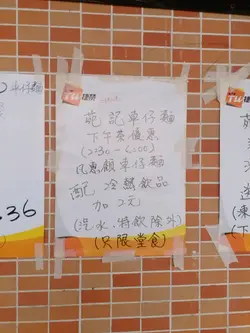 車仔麵
ru 捷榮
苑記車仔麵
下午茶優惠
(2:30-6:00)
凡惠顧車仔麵
配 冷熱飲品
加 2元
(汽水.特飲除外)
(只限堂食)
.36
ru